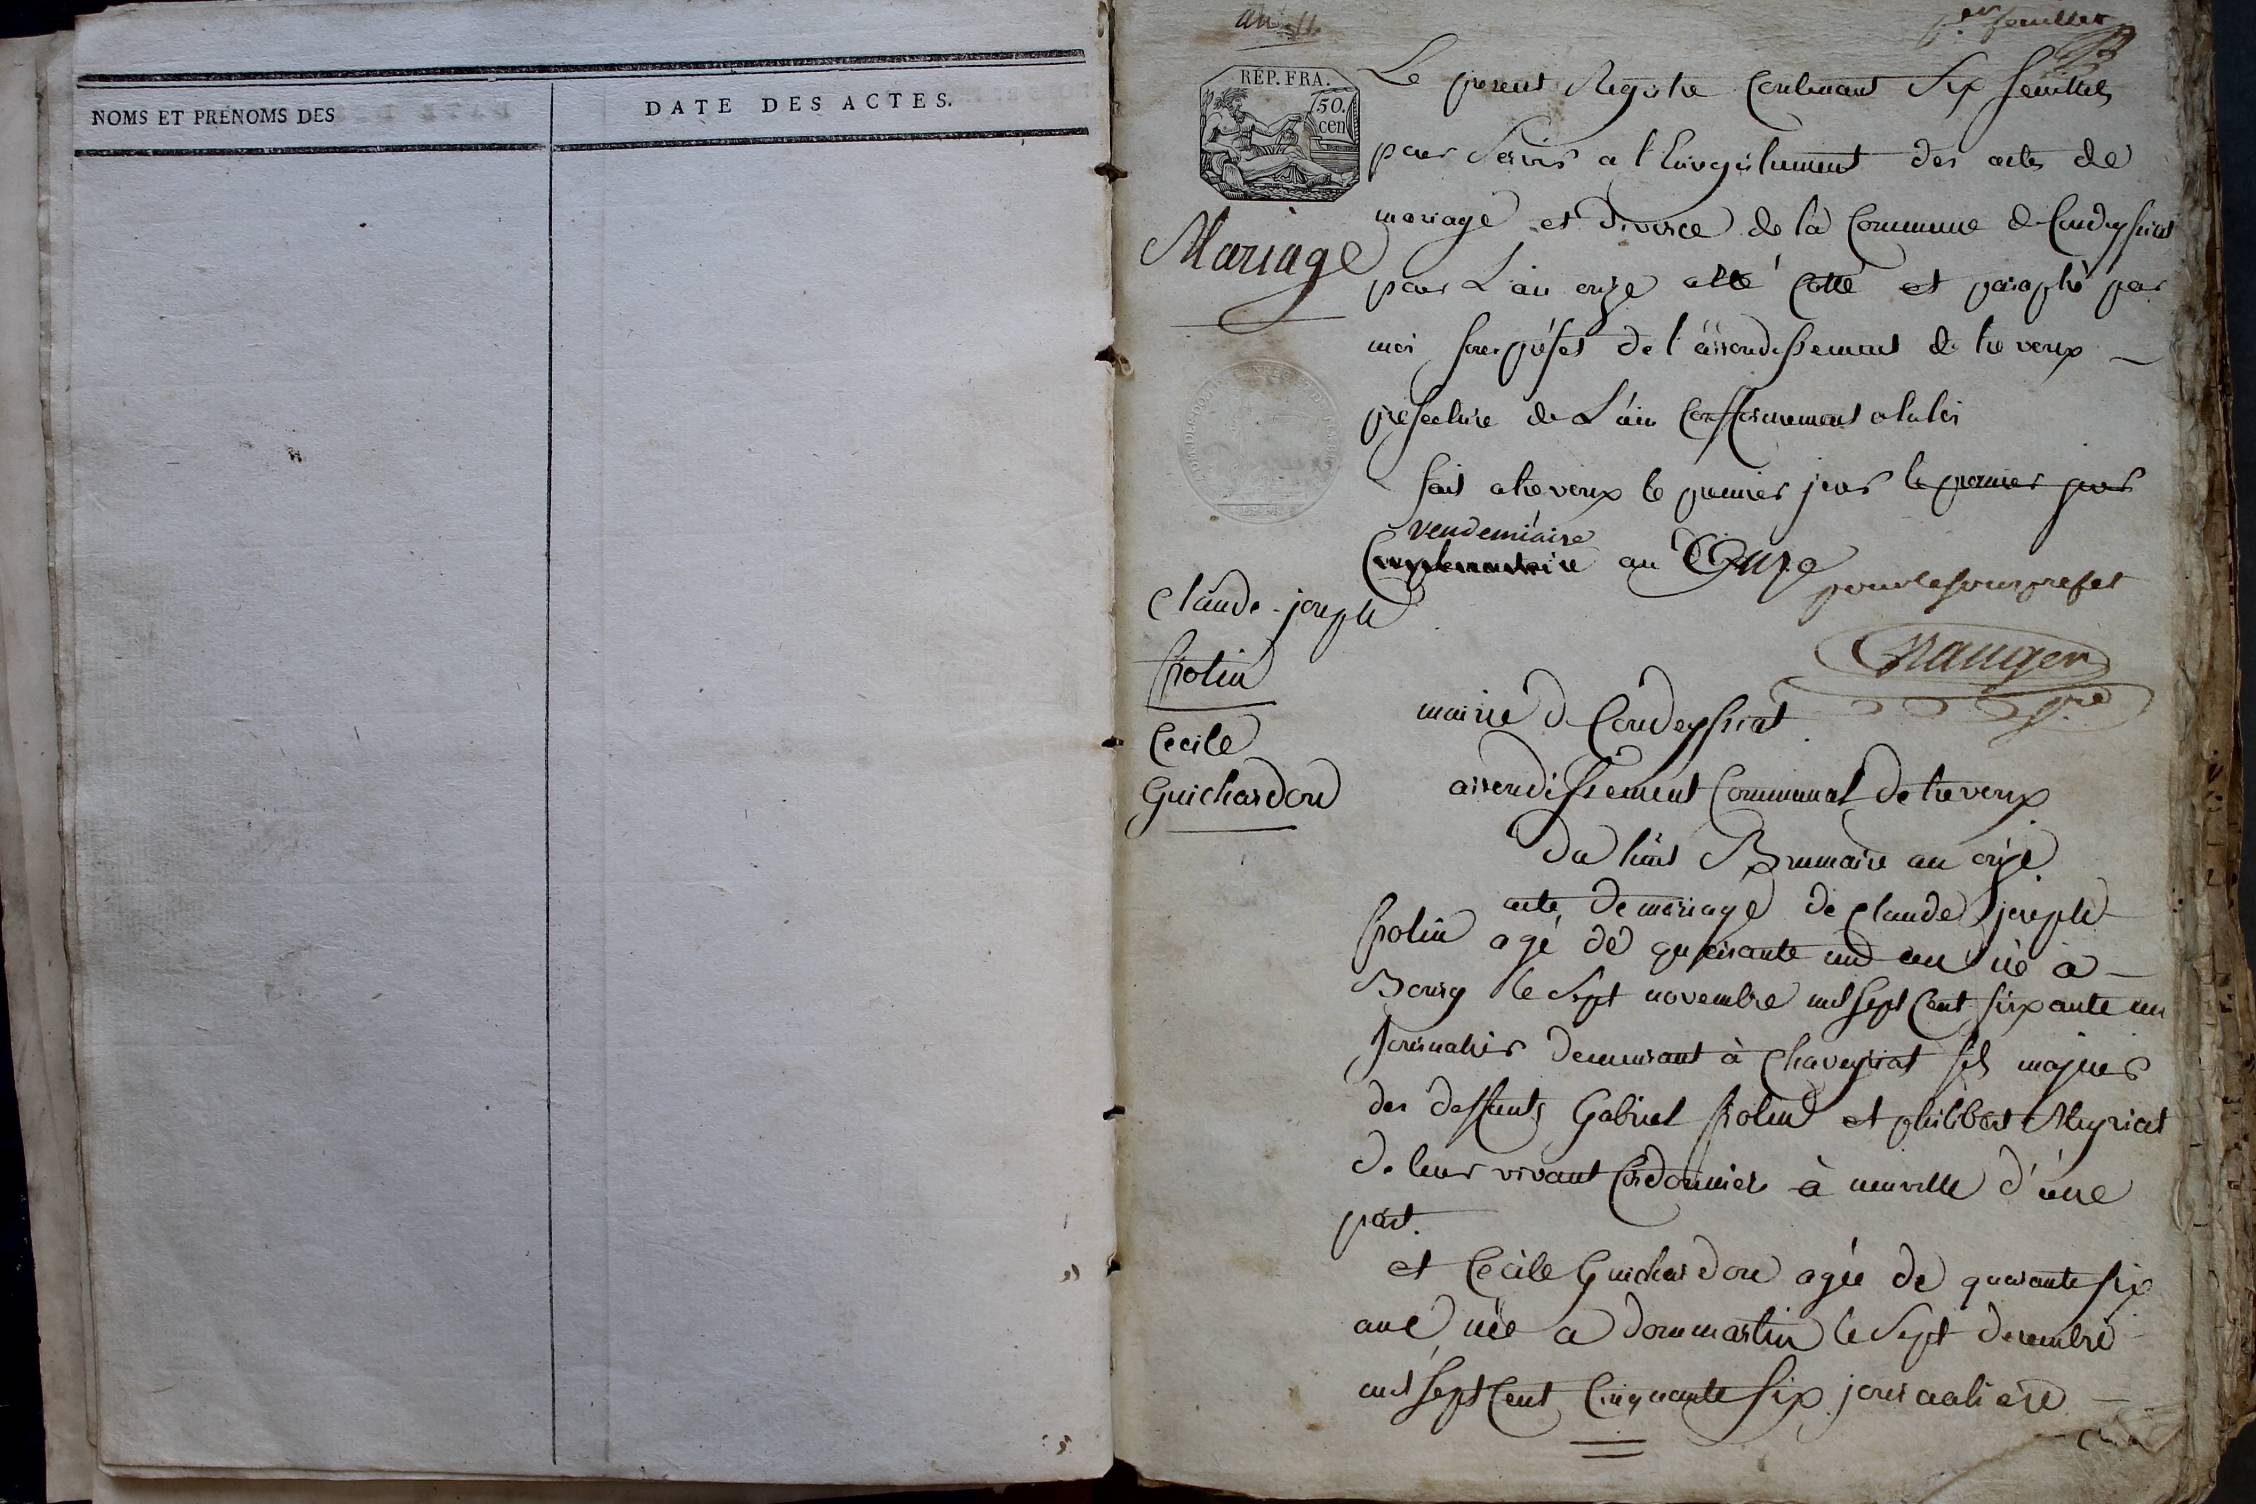 NOMS ET PRÉNOMS DES
DATE DES ACTES.
an 11.
1er feuillet
RÉP. FRA.
50.
cen
Le present Registre Contenant Six feuillets
pour Servir a l'Enregistrement des actes de
mariage et divorce de la Commune de Condeyssiat
pour L'an onze a été Cotté et paraphé par
moi sous prefet de l'arrondissement de trevoux
prefecture de L'ain Conformement a la loi
fait a trevoux le premier jour le premier jour
vendemiaire
Complementaire an Onze
pour le sous prefet
Mariage
Claude-joseph
frolin
Cecile
Guichardon
mairie de Condeyssiat
arrondissement Communal de trevoux
du huit Brumaire an onze
acte de mariage de Claude joseph
frolin agé de quarante un an né à
Bourg le Sept novembre mil sept Cent soixante un
Journalier demeurant à Chaveyriat fils majeur
des deffunts Gabriel frolin et philibert Meyriat
de leur vivant Cordonnier à neuville d'une
part.
et Cécile Guichardon agée de quarante six
ans née a dommartin le Sept decembre
mil sept Cent Cinquante Six journaliere